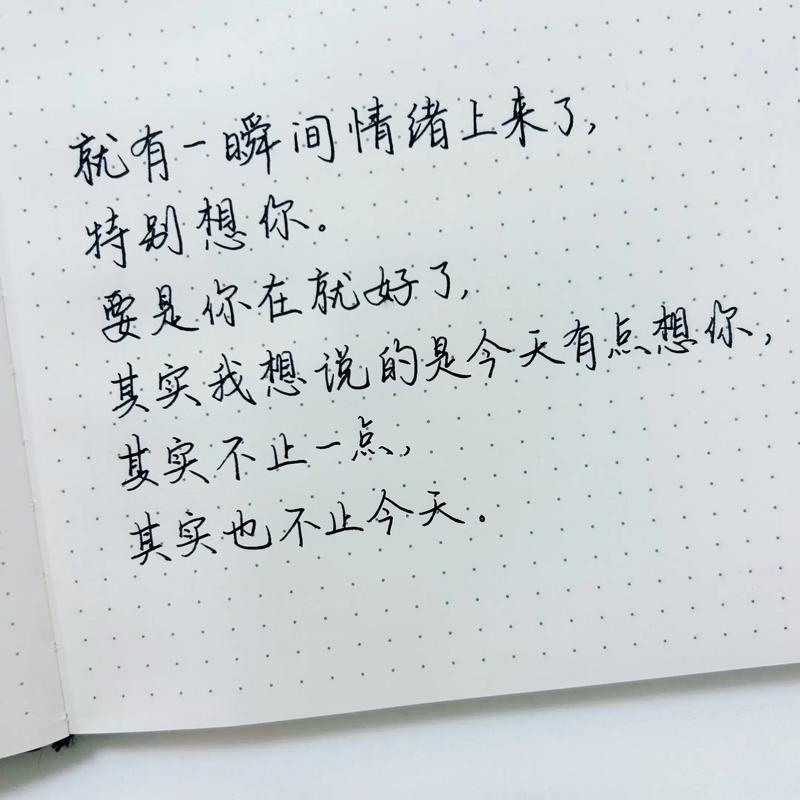 就有一瞬间情绪上来了,
特别想你。
要是你在就好了,
其实我想说的是今天有点想你,
其实不止一点,
其实也不止今天。